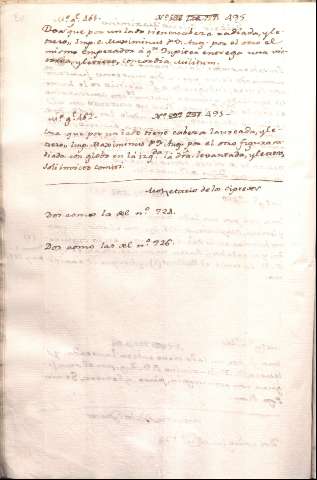 Nº 495.
Dos que por un lado tienen cabera radiada, y le-
trero, Imp. C. Maximinus P. F. Aug. por el otro el
mismo emperador á qn. Jupiter entrega una vic-
toria, y letrero, concordia militum.
Nº 495-
Una que por un lado tiene cabera laureada, y le-
trero, Imp. Maximinus P. F. Aug. por el otro figura ra-
diada con globo en la izqda. la dra. levantada, y letrero,
soli invicto comiti.
Monetario de los
Dos como la del nº. 924.
Dos como las del nº. 926.